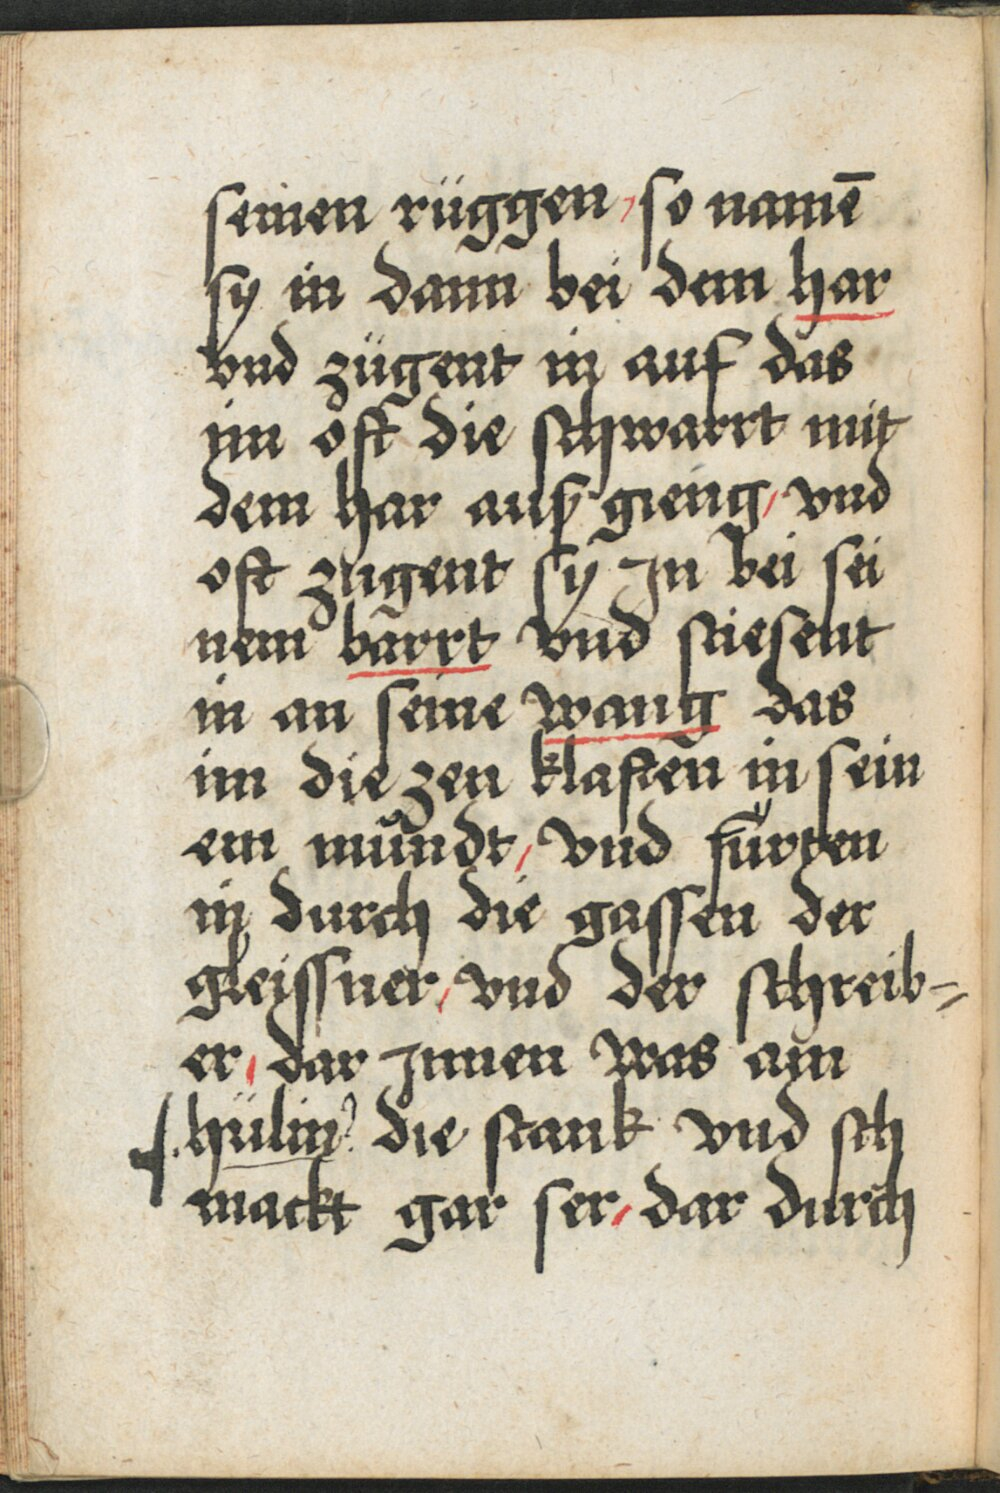 seinen rüggen / so namē
sy in dann bei dem har
vnd zügent in auf das
im oft die schwarrt mit
dem har auß gieng / vnd
oft zugent sy Jn bei sei
nem barrt vnd stiesent
in an seine wang das
im die zen klaften in sein
em mundt / vnd fürten
in durch die gassen der
gleissner / vnd der schreib=
er / dar Jnnen was ain
hülin die stank vnd sch
mackt gar ser / dar durch